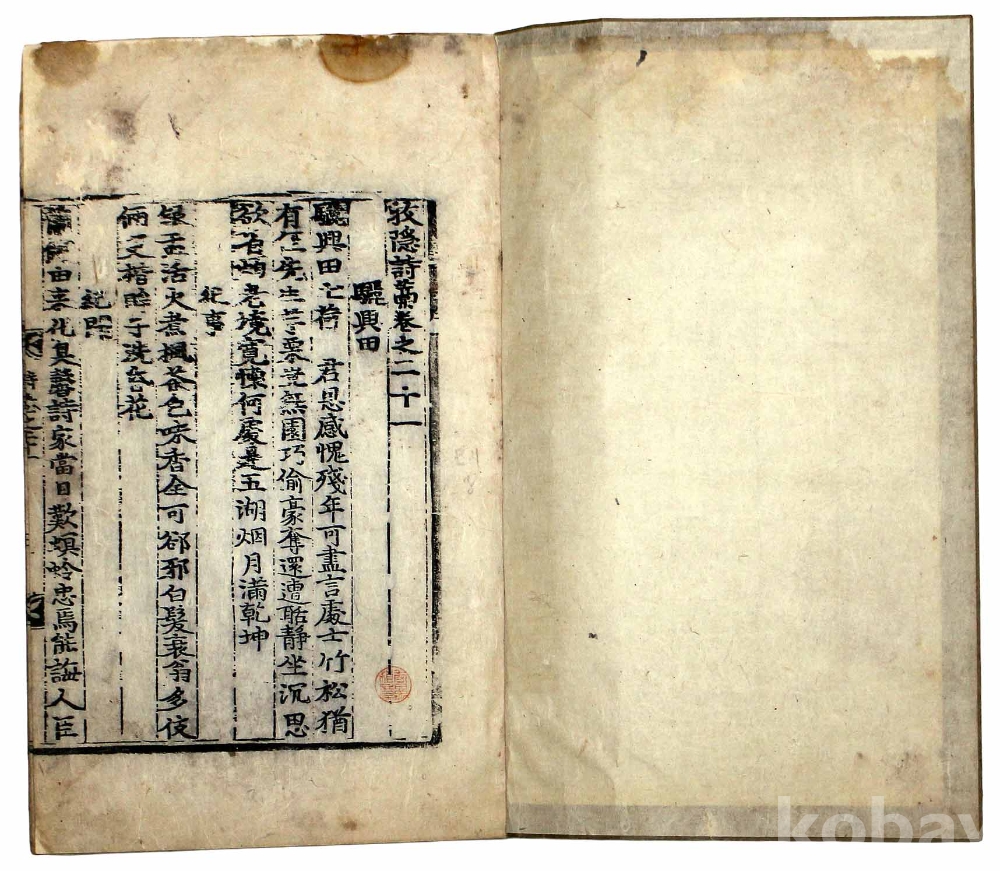 牧隱詩藁卷之二十一
驪興田
驪興田已荷 君恩感愧殘年可盡言處士竹松猶
有 先生芋栗豈無園巧偷豪奪還遭聒靜坐沉思
欲 老境寬悚何處是五湖烟月滿乾坤
紀事
活火煮楓 色味香全可 邪白髮衰翁多伎
倆又 子洗 花
由來化 詩家當日歎螟蛉忠焉能誨人臣
kobay